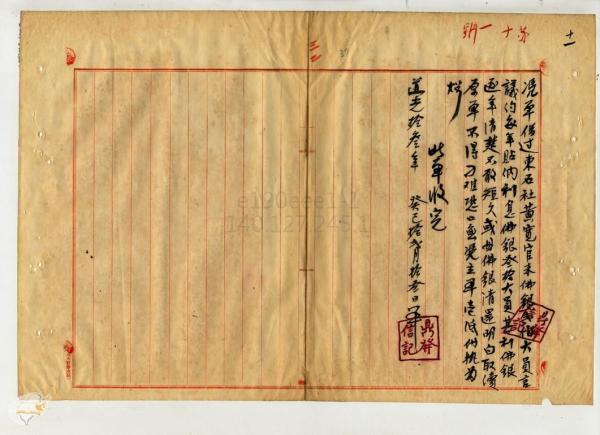 十一
第十一號
憑單借过東石社黃寬官来佛銀大員言
議约每年貼納利息佛銀叁拾大員其利佛銀
逐年清楚不敢短欠或母佛銀清還明白取瀆
原單不得刁难恐口無憑立單壱纸付执為
炤
此單收完
道光拾叁年 癸巳拾弍月拾叁日單
鼎發
信記